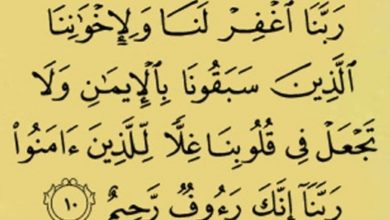 رَبَّنَا ٱغْفِرْ لَنَا وَلِإِخْوَٰنِنَا
ٱلَّذِينَ سَبَقُونَا بِٱلْإِيمَـٰنِ وَلَا
تَجْعَلْ فِى قُلُوبِنَا غِلًّا لِّلَّذِينَ ءَامَنُوا۟
رَبَّنَآ إِنَّكَ رَءُوفٌ رَّحِيمٌ ١٠